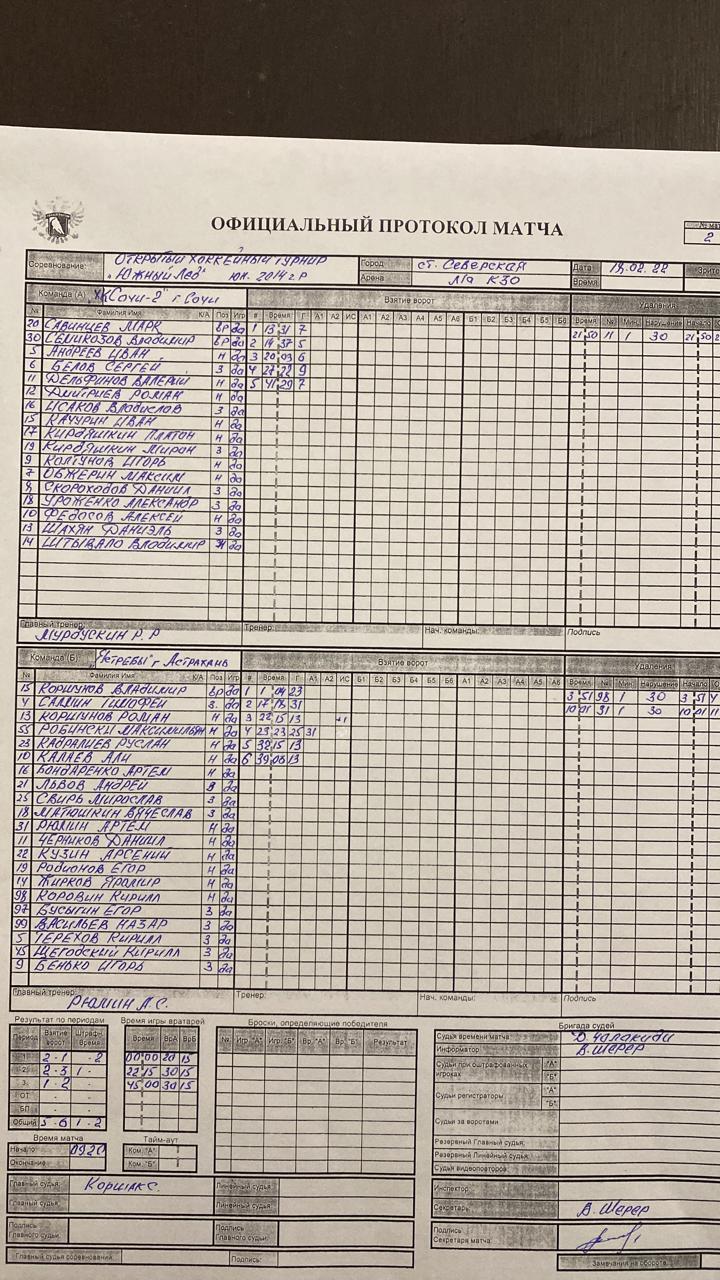 ОФИЦИАЛЬНЫЙ ПРОТОКОЛ МАТЧА
2
Соревнование: Открытый хоккейный турнир "Южный Лед" юн. 2014 г.р
Город ст. Северская
Дата 18.02.22
Арена
Время
Команда (А) ХК Сочи-2 г Сочи Взятие ворот Удаления
№ Фамилия Имя К/А Поз Игр # Время Г А1 А2 ИС А1 А2 А3 А4 А5 А6 Б1 Б2 Б3 Б4 Б5 Б6 Время № Мин. Нарушение Начало
20 САВИНЦЕВ МАРК Вр да 1 13 31 7 21 50 11 1 30 21 50
30 СЕМИКОЗОВ Владимир Вр да 2 19 37 5
5 АНДРЕЕВ ИВАН Н да 3 20 03 6
6 БЕЛОВ СЕРГЕЙ З да 4 27 22 9
11 ДЕЛЬФИНОВ ВАЛЕРИЙ Н да 5 41 29 7
12 ДМИТРИЕВ РОМАН Н да
16 ИСАКОВ Владислав З да
15 КАЧУРИН ИВАН Н да
17 КИРДЯШКИН ПЛАТОН Н да
19 КИРДЯШКИН Мирон З да
9 КОЛТУНОВ ИГОРЬ Н да
7 ОБЖЕРИН МАКСИМ Н да
8 СКОРОХОДОВ ДАНИИЛ З да
18 УРОЖЕНКО АЛЕКСАНДР З да
10 ФЕДОСОВ АЛЕКСЕЙ Н да
13 ШАХЯН ДАНИЭЛЬ З да
14 ШТЫВАЛО Владимир Н да
Главный тренер: Тренер: Нач. команды: Подпись
Команда (Б) "Ястребы" г Астрахань Взятие ворот Удаления
№ Фамилия Имя К/А Поз Игр # Время Г А1 А2 ИС Б1 Б2 Б3 Б4 Б5 Б6 А1 А2 А3 А4 А5 А6 Время № Мин. Нарушение Начало
15 КОРШУНОВ ВЛАДИМИР Вр да 1 1 04 23 3 51 98 1 30 3 51
4 САМИН ТИМОФЕЙ да 2 17 18 31 10 01 31 1 30 10 01
13 КОРШУНОВ РОМАН Н да 3 22 15 13 +1
55 РОБИНСКИ МАКСИМИЛЬЯН Н да 4 23 23 25 31
23 КАДРАЛИЕВ РУСЛАН Н да 5 32 15 13
10 КАЛАЕВ АЛИ Н да 6 39 06 13
16 БОНДАРЕНКО АРТЕМ Н да
21 ЛЬВОВ АНДРЕЙ да
25 СВИРЬ МИРОСЛАВ З да
18 МАТЮШКИН ВЯЧЕСЛАВ З да
31 РЮМИН АРТЕМ Н да
11 ЧЕРНИКОВ ДАНИИЛ Н да
22 КУЗИН АРСЕНИЙ Н да
19 РОДИОНОВ ЕГОР Н да
14 ЖИРКОВ ЯРОМИР Н да
98 КОРОВИН КИРИЛЛ Н да
97 БУСЫГИН ЕГОР З да
99 ВАСИЛЬЕВ НАЗАР З да
5 ТЕРЕХОВ КИРИЛЛ З да
45 ЩЕГОДСКИЙ КИРИЛЛ З да
9 БЕНЬКО ИГОРЬ З да
Главный тренер: Рюмин Л.С. Тренер: Нач. команды: Подпись
Результат по периодам Время игры вратарей Броски, определяющие победителя Бригада судей
Период Взятие ворот Штрафн. Время Время ВрА ВрБ № Игр. "А" Игр. "Б" Вр. "А" Вр. "Б" Результат
1 2 - 1 - 2 00 00 20 15
2 2 - 3 1 - 22 15 30 15
3 1 - 2 - 45 00 30 15
ОТ
БП
Общий 5 - 6 1 - 2
Судья времени матча:
Информатор В. Шерер
Судьи при оштрафованных игроках "А" "Б"
Судьи регистраторы "А" "Б"
Судьи за воротами
Резервный Главный судья:
Резервный Линейный судья:
Судья видеоповторов:
Время матча Тайм-аут
Начало 0920 Ком. "А"
Окончание Ком. "Б"
Главный судья: Коршак С. Линейный судья:
Главный судья: Линейный судья:
Инспектор:
Секретарь: В. Шерер
Подпись Главного судьи: Подпись Главного судьи:
Подпись Секретаря матча:
Главный судья соревнований: Подпись:
Замечания на обороте